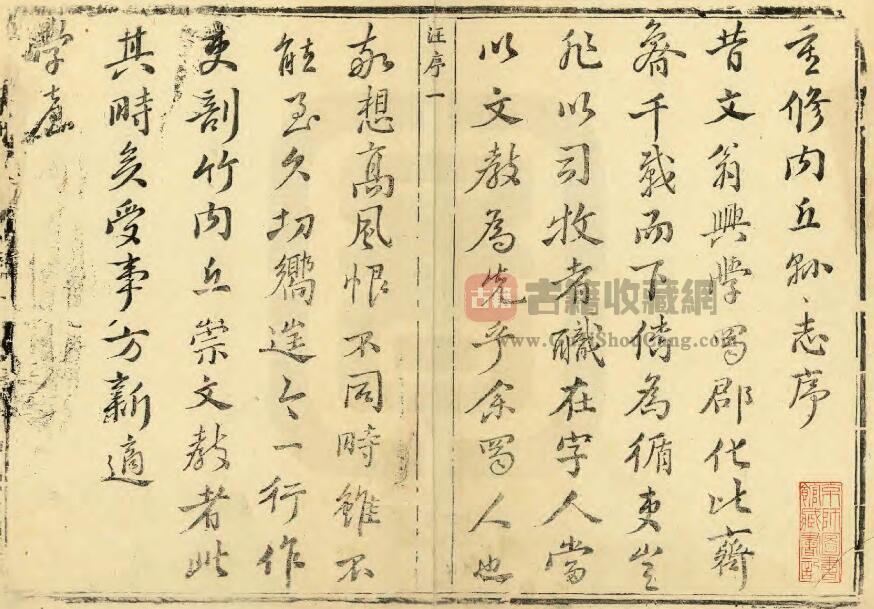 重修内丘縣志序
昔文翁興學蜀郡化比齊
魯千載而下為循吏豈
非以司牧者職在字人當
以文教為先乎余蜀人也
汪序一
想高風恨不同時雖不
能至久切嚮今一行作
吏剖竹内丘崇文教者此
其時矣受事方新適
學憲
京師圖書
館藏書印
古籍
古籍收藏網
www.GujiShouCang.com